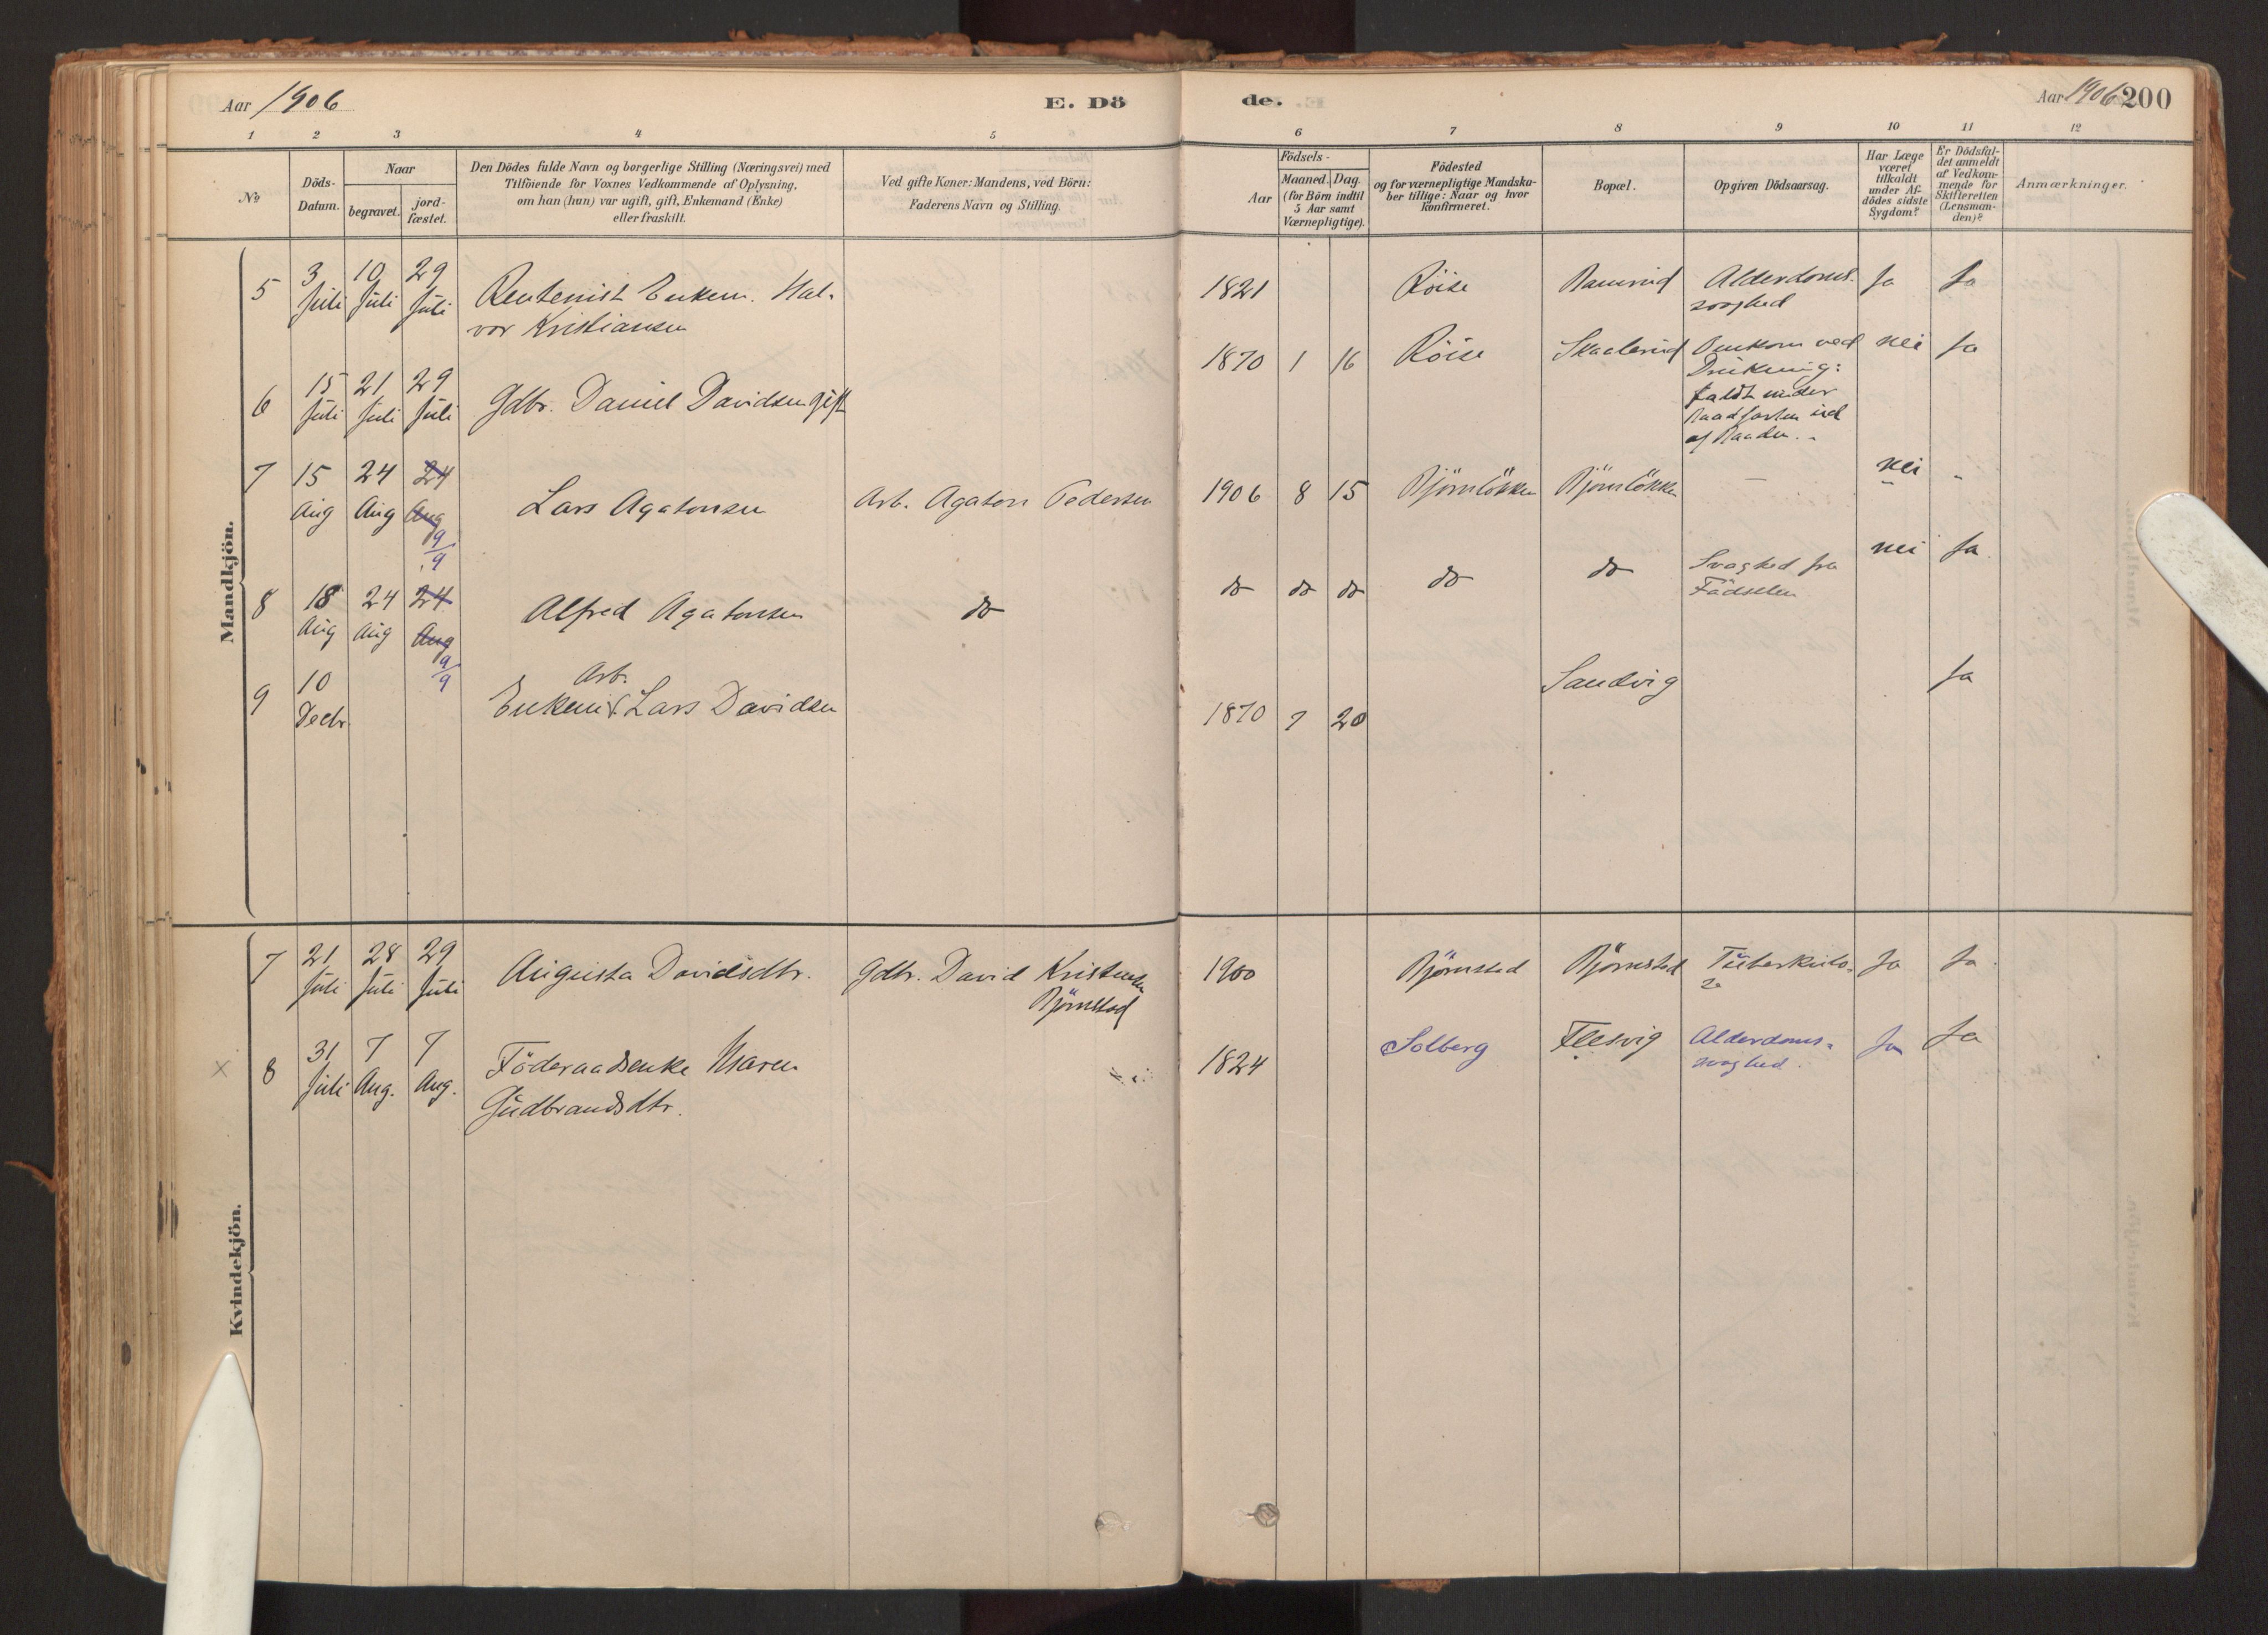 Aar 1906
E. Dö
1 2 3 4 5
No
Döds-
Datum.
Naar
begravet.
jord-
fæstet.
Den Dödes fulde Navn og borgerlige Stilling (Næringsvei) med
Tilföiende for Voxnes Vedkommende af Oplysning,
om han (hun) var ugift, gift, Enkemand (Enke)
eller fraskilt.
Ved gifte Koner: Mandens, ved Börn:
Faderens Navn og Stilling.
Mandkjön.
5 3 Juli 10 Juli 29 Juli Rentenist Enkem. Hal-
vor Kristiansen
6 15 Juli 21 Juli 29 Juli Gdbr. Daniel Davidsen gift
7 15 Aug 24 Aug 24 Aug 9/9 Lars Agatonsen Arb. Agaton Pedersen
8 18 Aug 24 Aug 24 Aug 9/9 Alfred Agatonsen do
9 10 Decbr. Arb.
Enkem. Lars Davidsen
Kvindekjön.
7 21 Juli 28 Juli 29 Juli Augusta Davidsdtr. Gdbr. David Kristensen
Björnstad
x 8 31 Juli 7 Aug. 7 Aug. Föderaadsenke Maren
Gudbrandsdtr.
de.
Aar 1906 200
6 7 8 9 10 11 12
Födsels-
Aar
Maaned. Dag.
(for Börn indtil
5 Aar samt
Værnepligtige).
Födested
og for værnepligtige Mandska-
ber tillige: Naar og hvor
konfirmeret.
Bopæl.
Opgiven Dödsaarsag.
Har Læge
været
tilkaldt
under Af-
dödes sidste
Sygdom?
Er Dödsfal-
det anmeldt
af Vedkom-
mende for
Skifteretten
(Lensman-
den)?
Anmærkninger.
1821 Röise Ramrud Alderdoms-
svaghed Ja Ja
1870 1 16 Röise Skaalerud Omkom ved
Drukning:
faldt under
Baadfarten ud
af Baaden. nei Ja
1906 8 15 Björnlökken Björnlökken — nei -
do do do do do Svaghed fra
Födselen nei Ja
1870 7 20 Sandvig Ja
1900 Björnstad Björnstad Tuberkulo-
se Ja Ja
1824 Solberg Flesvig Alderdoms-
svaghed. Ja Ja